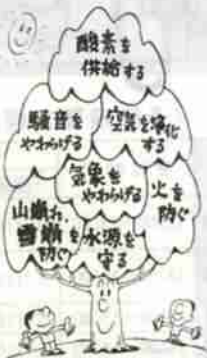 酸素を
供給する
騒音を
やわらげる
空気を浄化
する
気象を
やわらげる
火を
防ぐ
山崩れ、
雪崩を
防ぐ
水源を
守る